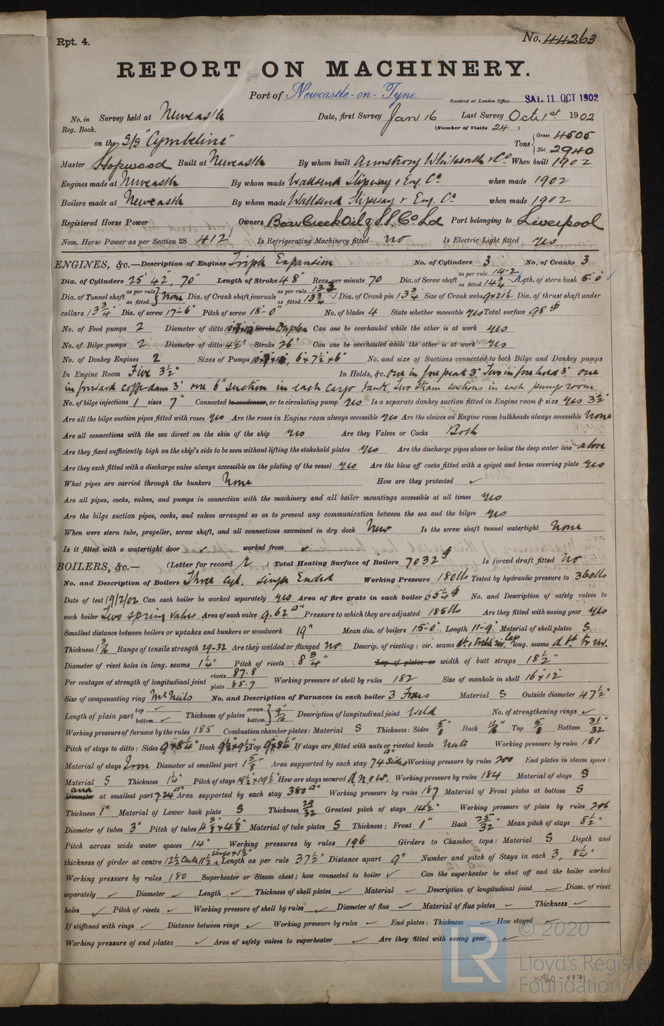 Rpt. 4. No. 44263
REPORT ON MACHINERY.
Port of Newcastle-on-Tyne.
Received at London Office SAT. 11 OCT 1902
No. in Survey held at Newcastle Date, first Survey Jan 16 Last Survey Oct 1st 1902
Reg. Book. (Number of Visits 24)
on the S/S "Cymbeline" Tons Gross 4505 Net 2940
Master Hopwood Built at Newcastle By whom built Armstrong Whitworth & Co When built 1902
Engines made at Newcastle By whom made Wallsend Slipway & Eng. Co when made 1902
Boilers made at Newcastle By whom made Wallsend Slipway & Eng. Co when made 1902
Registered Horse Power Owners Bear Creek Oil & S.S. Co Ld Port belonging to Liverpool
Nom. Horse Power as per Section 28 412 Is Refrigerating Machinery fitted no Is Electric Light fitted yes
ENGINES, &c.—Description of Engines Triple Expansion No. of Cylinders 3 No. of Cranks 3
Dia. of Cylinders 25" 42", 70" Length of Stroke 48" Revs. per minute 70 Dia. of Screw shaft as per rule 14.2 as fitted Lgth. of stern bush 5'0"
Dia. of Tunnel shaft as per rule as fitted none Dia. of Crank shaft journals as per rule 13.3 as fitted 13¾ Dia. of Crank pin 13¾ Size of Crank webs 9×21½ Dia. of thrust shaft under
collars 13¾" Dia. of screw 17-6" Pitch of screw 18-0" No. of blades 4 State whether moveable yes Total surface 98
No. of Feed pumps 2 Diameter of ditto Stroke Duplex Can one be overhauled while the other is at work yes
No. of Bilge pumps 2 Diameter of ditto 4½" Stroke 26" Can one be overhauled while the other is at work yes
No. of Donkey Engines 2 Sizes of Pumps 6×7½×6" No. and size of Suctions connected to both Bilge and Donkey pumps
In Engine Room Five 3½" In Holds, &c. One in fore peak 3" Two in fore hold 3" one
in forward cofferdam 3" one 6" suction in each cargo tank, two steam suctions in each pump room
No. of bilge injections 1 sizes 7" Connected to condenser, or to circulating pump yes Is a separate donkey suction fitted in Engine room & size yes 3½"
Are all the bilge suction pipes fitted with roses yes Are the roses in Engine room always accessible yes Are the sluices on Engine room bulkheads always accessible none
Are all connections with the sea direct on the skin of the ship yes Are they Valves or Cocks Both
Are they fixed sufficiently high on the ship's side to be seen without lifting the stokehold plates yes Are the discharge pipes above or below the deep water line above
Are they each fitted with a discharge valve always accessible on the plating of the vessel yes Are the blow off cocks fitted with a spigot and brass covering plate yes
What pipes are carried through the bunkers none How are they protected ✓
Are all pipes, cocks, valves, and pumps in connection with the machinery and all boiler mountings accessible at all times yes
Are the bilge suction pipes, cocks, and valves arranged so as to prevent any communication between the sea and the bilges yes
When were stern tube, propeller, screw shaft, and all connections examined in dry dock New Is the screw shaft tunnel watertight none
Is it fitted with a watertight door ✓ worked from ✓
BOILERS, &c.— (Letter for record ) Total Heating Surface of Boilers 7032 Is forced draft fitted No
No. and Description of Boilers Three Cyl. Single Ended Working Pressure 180lbs Tested by hydraulic pressure to 360lbs
Date of test 19/2/02 Can each boiler be worked separately yes Area of fire grate in each boiler No. and Description of safety valves to
each boiler Two spring valves Area of each valve 9.62 Pressure to which they are adjusted 185lbs Are they fitted with easing gear yes
Smallest distance between boilers or uptakes and bunkers or woodwork 19" Mean dia. of boilers 15-0" Length 11-9" Material of shell plates S
Thickness 1 3/16 Range of tensile strength 29-32 Are they welded or flanged no Descrip. of riveting: cir. seams long. seams
Diameter of rivet holes in long. seams 1¼" Pitch of rivets 8¾" Lap of plates or width of butt straps 18½"
Per centages of strength of longitudinal joint rivets 87.8 plate 85.7 Working pressure of shell by rules 182 Size of manhole in shell 16×12
Size of compensating ring McNeils No. and Description of Furnaces in each boiler 3 Material S Outside diameter 47½"
Length of plain part top ✓ bottom ✓ Thickness of plates crown bottom 9/16 Description of longitudinal joint Weld No. of strengthening rings ✓
Working pressure of furnace by the rules 185 Combustion chamber plates: Material S Thickness: Sides 5/8 Back 11/16 Top 5/8 Bottom 31/32
Pitch of stays to ditto: Sides 9×8¼" Back 9½×9½ Top 9×8¼ If stays are fitted with nuts or riveted heads nuts Working pressure by rules 181
Material of stays Iron Diameter at smallest part 1 5/8 Area supported by each stay 74 Working pressure by rules 200 End plates in steam space:
Material S Thickness 1¼" Pitch of stays How are stays secured Working pressure by rules 184 Material of stays S
Area at smallest part Area supported by each stay 380 Working pressure by rules 187 Material of Front plates at bottom S
Thickness 1" Material of Lower back plate S Thickness 29/32 Greatest pitch of stays 14½" Working pressure of plate by rules 206
Diameter of tubes 3" Pitch of tubes 4 3/8 × 4 1/8" Material of tube plates S Thickness: Front 1" Back 25/32 Mean pitch of stays 8½"
Pitch across wide water spaces 14" Working pressures by rules 196 Girders to Chamber tops: Material S Depth and
thickness of girder at centre Length as per rule 37½" Distance apart 9" Number and pitch of Stays in each 3, 8¼"
Working pressure by rules 180 Superheater or Steam chest; how connected to boiler ✓ Can the superheater be shut off and the boiler worked
separately ✓ Diameter ✓ Length ✓ Thickness of shell plates ✓ Material ✓ Description of longitudinal joint ✓ Diam. of rivet
holes ✓ Pitch of rivets ✓ Working pressure of shell by rules ✓ Diameter of flue ✓ Material of flue plates ✓ Thickness ✓
If stiffened with rings ✓ Distance between rings ✓ Working pressure by rules ✓ End plates: Thickness ✓ How stayed ✓
Working pressure of end plates ✓ Area of safety valves to superheater ✓ Are they fitted with easing gear ✓
© 2020
LR Lloyd's Register
Foundation